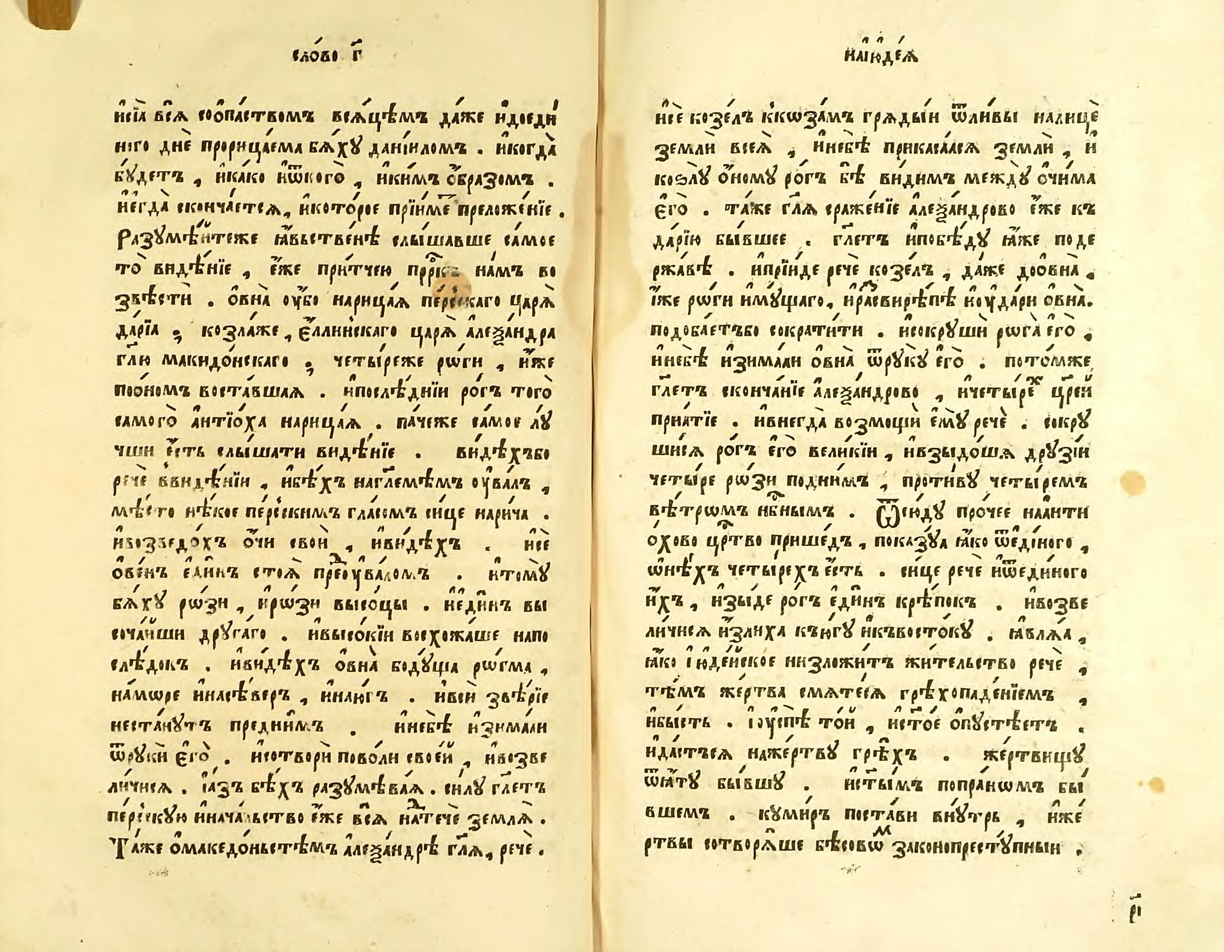 сло́во г҃
и҆сїѧ̀ всѧ̀ соопа́ствомъ всѧ́цѣмъ да́же и҆доеди
нⷩ҇го днѐ прорица́ема бѧ́хꙋ данїи́ломъ . и҆когда̀
бꙋ́детъ , и҆ка́ко и҆ѿкого̀ , и҆ки́мъ ѻ҆́бразомъ .
и҆егда̀ сконча́етсѧ , и҆кото́рое прїи́ме преложе́нїе .
Разꙋмѣ́итеже ꙗ҆́вьственѣ слы́шавше само́е
то̀ видѣ́нїе , е҆́же при́тчею прⷪ҇ркъ на́мъ во
звѣстѝ . овна̀ оу҆́бо нарица́ѧ пе́рскаго царѧ̀
да́рїа , козла́же , є҆́ллинскаго царѧ̀ а҆леѯа́ндра
гл҃ю македо́нскаго , четы́реже рѡ́ги , и҆́же
поо́номъ воста́вшаѧ . и҆послѣ́днїи ро́гъ того̀
самого̀ а҆нтїо́ха нарица́ѧ . па́чеже само́е лꙋ́
чши є҆́сть слы́шати видѣ́нїе . ви́дѣхъбо
речѐ ввидѣ́нїи , и҆бѣ́хъ наглемлемъ оу҆ва́лъ ,
мѣ́сто нѣ́кое пе́рскимъ гла́сомъ си́це нарича̀ .
и҆возведо́хъ ѻ҆́чи свои̑ , и҆ви́дѣхъ . и҆сѐ
ове́нъ є҆ди́нъ стоѧ̀ преⷣоу҆ва́ломъ . и҆томꙋ̀
бѧ́хꙋ рѡ́зи , и҆рѡ́зи высо́цы . и҆еди́нъ вы
соча́иши дрꙋга́го . и҆высо́кїи восхожа́ше напо
слѣ́докъ . и҆ви́дѣхъ овна̀ бодꙋ́ща рѡга́ма ,
на́мѡре и҆насѣ́веръ , и҆на́югъ . и҆вси̑ ѕвѣ́рїе
неста́нꙋтъ предни́мъ . и҆небѣ̀ и҆зима́ѧи
ѿрꙋкѝ є҆го̀ . и҆сотворѝ пово́ли свое́й , и҆возве
ли́чисѧ . і҆а́зъ бѣ́хъ разꙋмѣва́ѧ . си́лꙋ гл҃етъ
пе́рскꙋю и҆нача́льство е҆́же всѧ̀ наⷣтечѐ землѧ̀ .
Та́же ѻ҆македо́ньстѣмъ а҆леѯа́ндрѣ гл҃ѧ , речѐ .
наіꙋде́ѧ
и҆сѐ козе́лъ ккѡза́мъ грѧды́и ѿли́вы налицѐ
землѝ всеѧ̀ , и҆небѣ̀ прикаса́ѧсѧ землѝ , и҆
козлꙋ̀ ѻ҆́номꙋ ро́гъ бѣ̀ ви́димъ междꙋ̀ очи́ма
є҆го̀ . та́же гл҃ѧ сраже́нїе а҆леѯа́ндрово е҆́же къ
да́рїю бы́вшее . гл҃етъ и҆побѣ́дꙋ ꙗ҆́же поде
ржавѣ̀ . и҆прїи́де речѐ козе́лъ , да́же доовна̀ ,
і҆́же рѡ́ги и҆мꙋ́щаго , и҆разсвирѣпѣ̀ и҆оуда́ри овна̀ .
подоба́етъбо сократи́ти . и҆сокрꙋшѝ рѡга̀ его̀ ,
и҆небѣ̀ и҆зима́ѧи овна̀ ѿрꙋкꙋ̀ є҆го̀ . пото́мже
гл҃етъ сконча́нїе а҆леѯа́ндрово , и҆четы́реⷯ цр҃ей
прїѧ́тїе . и҆внегда̀ возмощѝ є҆мꙋ̀ речѐ . сокрꙋ
ши́сѧ ро́гъ є҆го̀ вели́кїи , и҆взыдо́шѧ дрꙋзі́и
четы́ре рѡ́зи подни́мъ , проти́вꙋ четы́ремъ
вѣ́трѡмъ нб҃нымъ . Ѿсю́дꙋ про́чее наанти
о́хово црⷭ҇тво прише́дъ , показꙋ́ѧ ꙗ҆́ко ѿеди́ного ,
ѡ҆нѣ́хъ четы́рехъ є҆́сть . си́це речѐ и҆ѿеди́ного
и҆́хъ , и҆зы́де ро́гъ є҆ди́нъ крѣ́покъ . и҆возве
ли́чисѧ и҆зли́ха къю́гꙋ и҆къвосто́кꙋ . ꙗ҆влѧ́ѧ ,
ꙗ҆́ко і҆ꙋде́йское низложи́тъ жи́тельство речѐ ,
тѣ́мъ же́ртва смѧте́сѧ грѣхопаде́нїемъ ,
и҆бы́сть . і҆оуспѣ̀ то́й , и҆ст҃о́е ѻ҆пꙋстѣ́етъ .
и҆да́стъсѧ наже́ртвꙋ грѣ́хъ . же́ртвищꙋ
ѿѧ́тꙋ бы́вшꙋ . и҆ст҃ы́мъ попра́нѡмъ бы́
вшемъ . кꙋми́ръ поста́ви внꙋ́трь , и҆́же
ртвы сотворѧ́ше бѣ́совѡⷨ законопрестꙋ́пныи .
р҃і